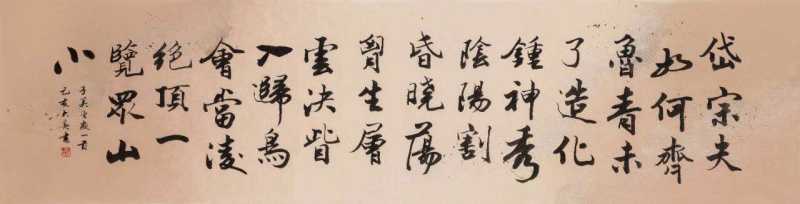 岱宗夫
如何齊
魯青未
了造化
鍾神秀
陰陽割
昏曉蕩
胷生層
雲決眥
入歸鳥
會當凌
絕頂一
覽眾山
小
子美望嶽一首
己亥 書